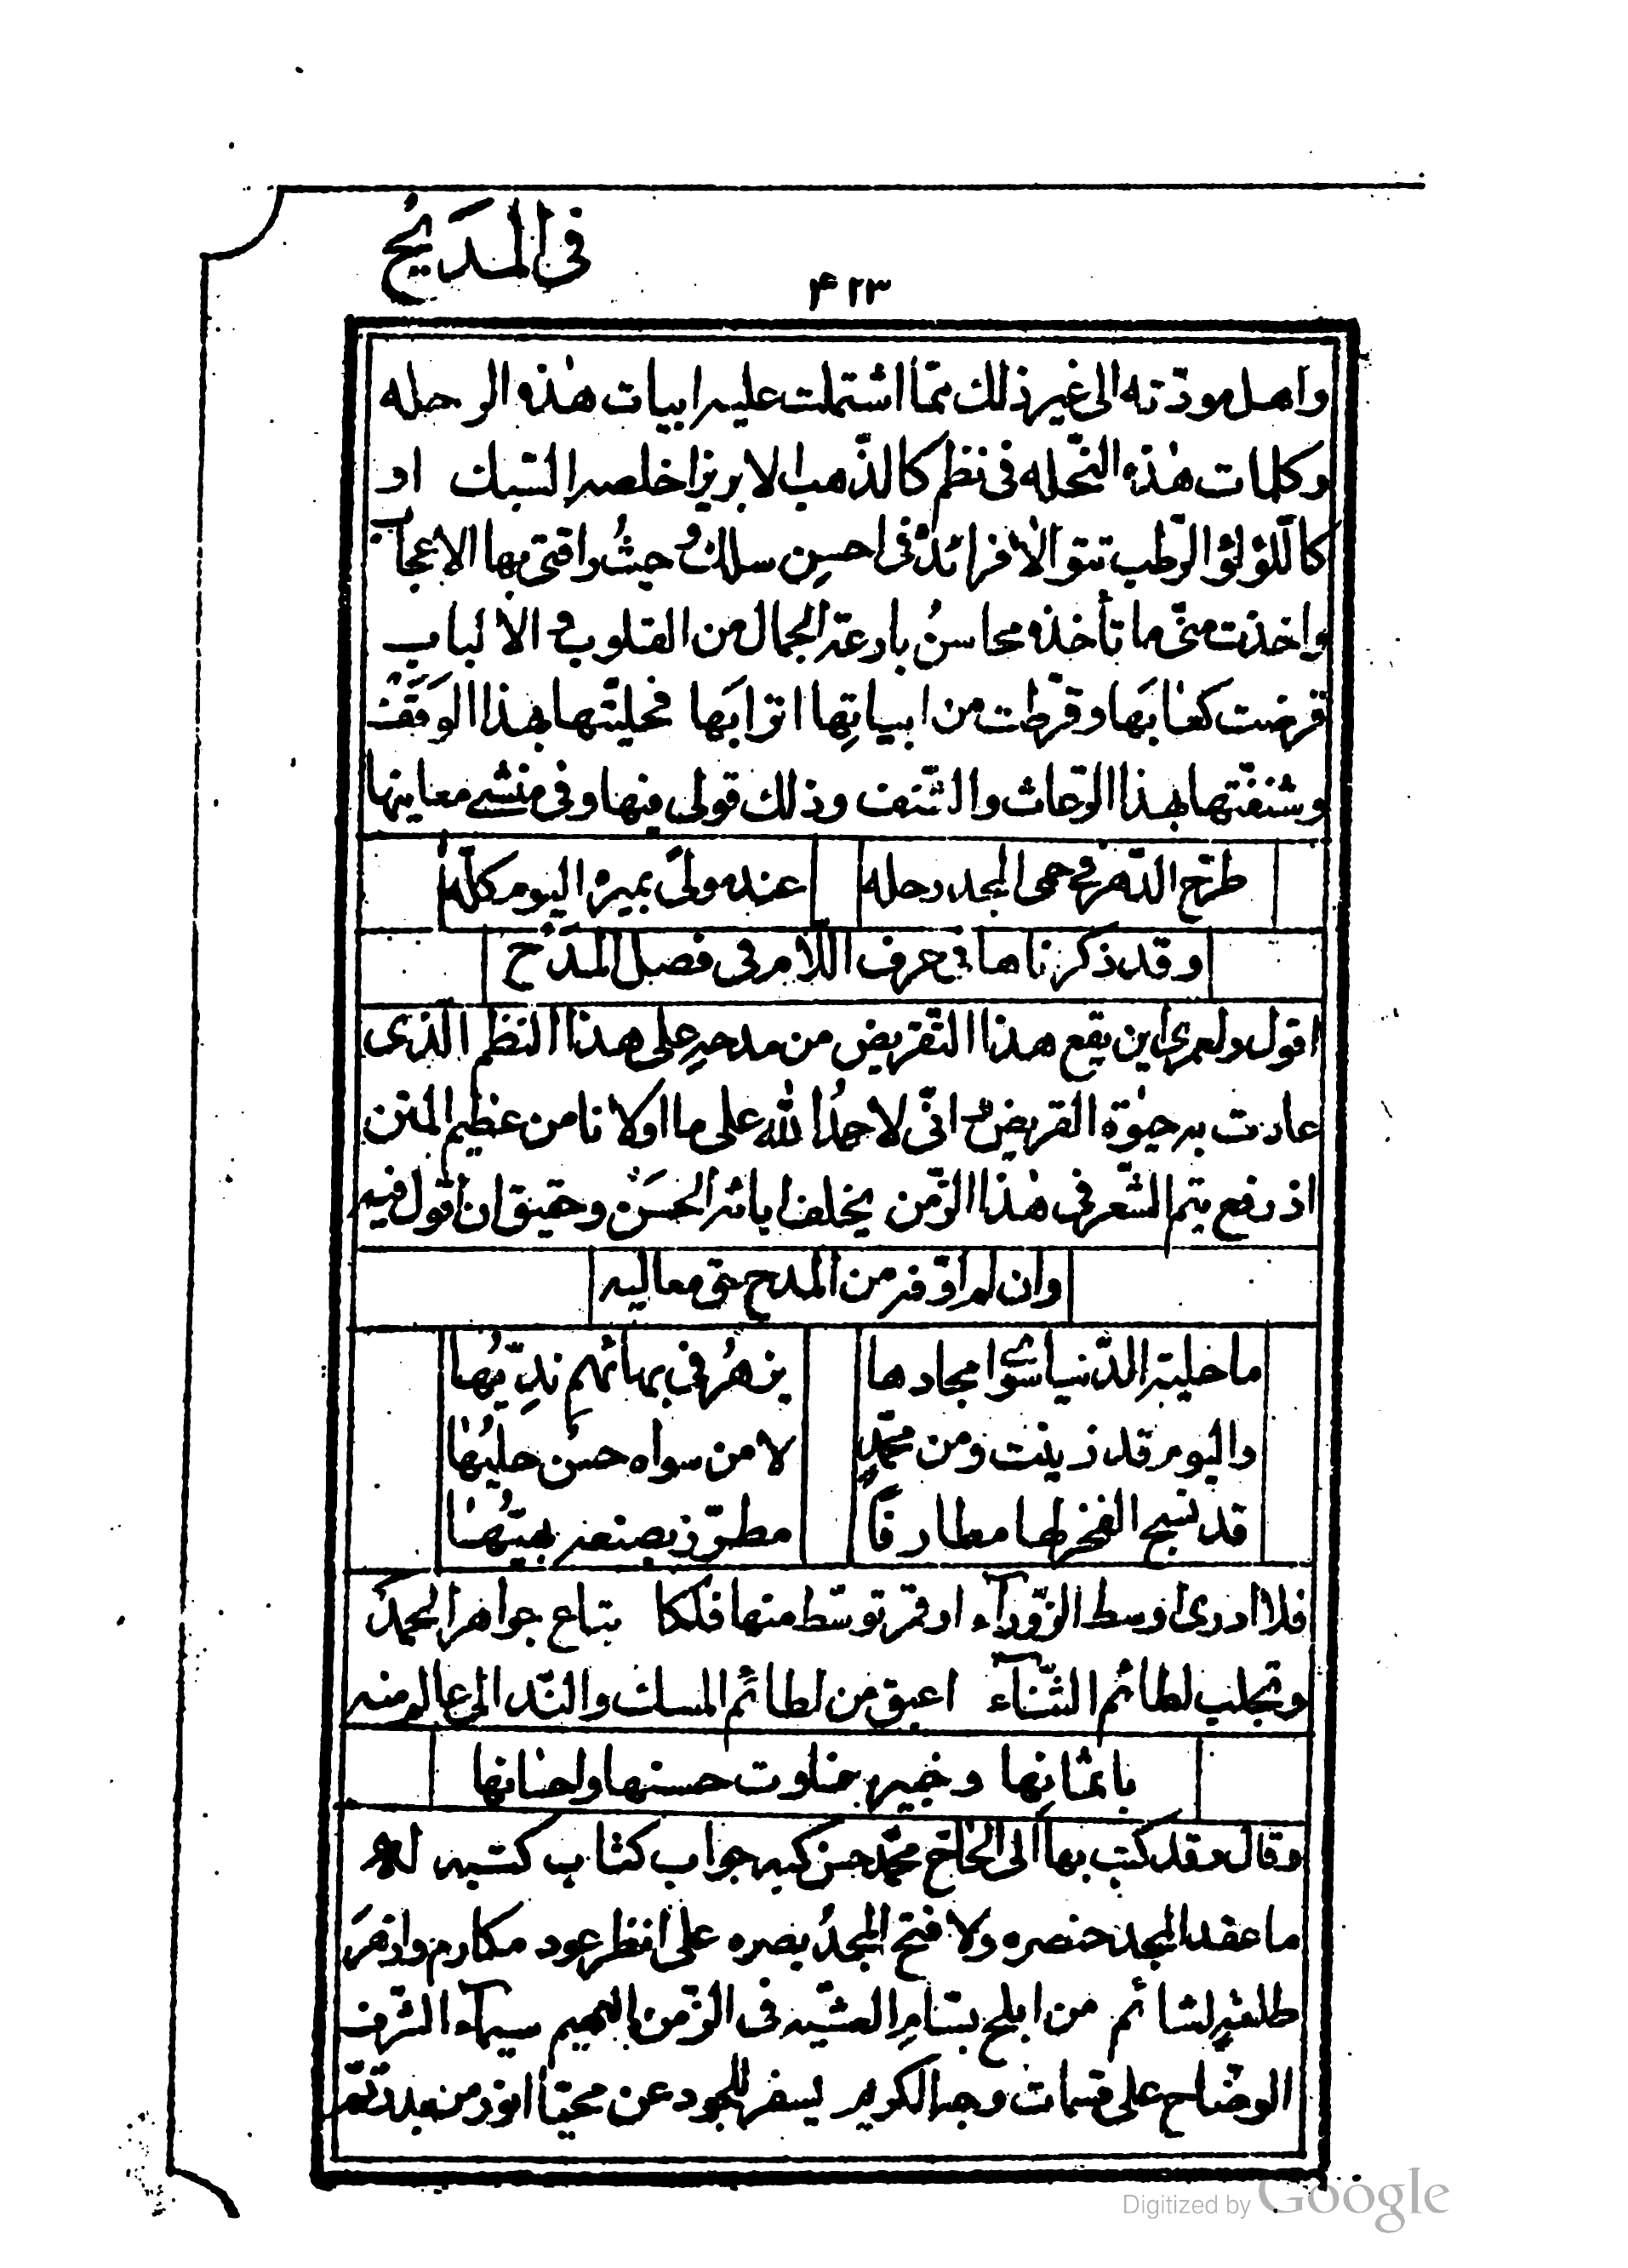 فى المديح
۴۲۳
واهل مودّته الى غير ذلك ممّا اشتملت عليه ابيات هذه الرحله
وكلمات هذه النّحله فى نظم كالذّهب الابريز اخلصه السّبك او
كاللّؤلؤ الرّطب تتوالا فرائده فى احسن سلك وحيث راقتنى بها الاعجاب
واخذت منّى ما تأخذه محاسن بارعة الجمال من القلوب والالباب
قرضت كعابها وقرّطت من ابياتها اترابها فحليتها بهذا الوقف
وشنفتها بهذا الرّعاث والشّنف وذلك قولى فيها وفى منشئ معانيها
طرح الدّهر فى حمى المجد رحله عند مولى يميره اليوم كلّه
وقد ذكرناها فى حرف اللّام فى فصل المدح
اقول ولعمرى اين يقع هذا التّقريض من مدحه على هذا النظم الذى
عادت به حيوة القريض وانّى لاحمد الله على ما اولانا من عظيم المنن
اذ رفع يتم الشّعر فى هذا الزّمن بخلف ابائه الحسن وحقيق ان اقول فيه
وان لم اوّفه من المدح حق معاليه
ما حلية الدّنيا سوى امجادها يزهر فى بهائهم نديّها
واليوم قد زينت ومن محمّد لا من سواه حسن حليها
قد نسج الفخر لها مطارفاً مطرّز بصنعه بهيّها
فلا ادرى اوسط الزّوراء او قمر توسّط منها فلكا تبتاع جواهر الحمد
وتجلب لطائم الثّناء اعبق من لطائم المسك والنّد الى عالم منه
باثمانها وخبير بتفاوت حسنها واحسانها
وقال وقد كتب بها الى الحاج محمّد حسن كبه جواب كتاب كتبه له
ما عقد المجد خنصره ولا فتح المجد بصره على انظر عود مكارم وازهر
طلعة لشائم من ابلج بسّام العشيّه فى الزّمن البهيم سيماء الشّرف
الوضّاح على قسمات وجهه الكريم يسفر للجود عن محيّا انور من بدر تمّ
Digitized by Google